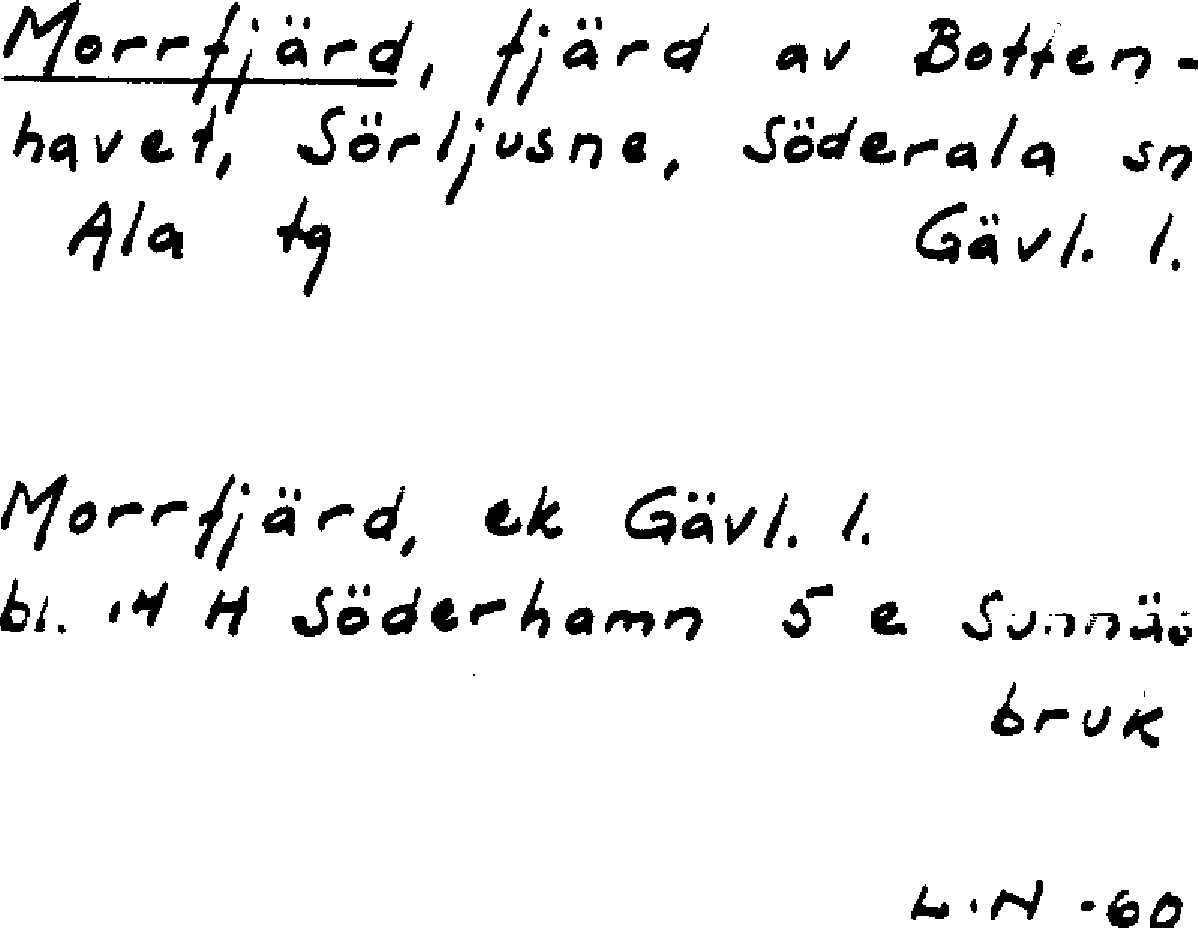 Morrfjärd, fjärd av Botten-
havet, Sörljusne, Söderala sn
Ala tg Gävl. l.
Morrfjärd, ek Gävl. l.
bl. 14 H Söderhamn 5 e Sunnäs
bruk
L.N -60